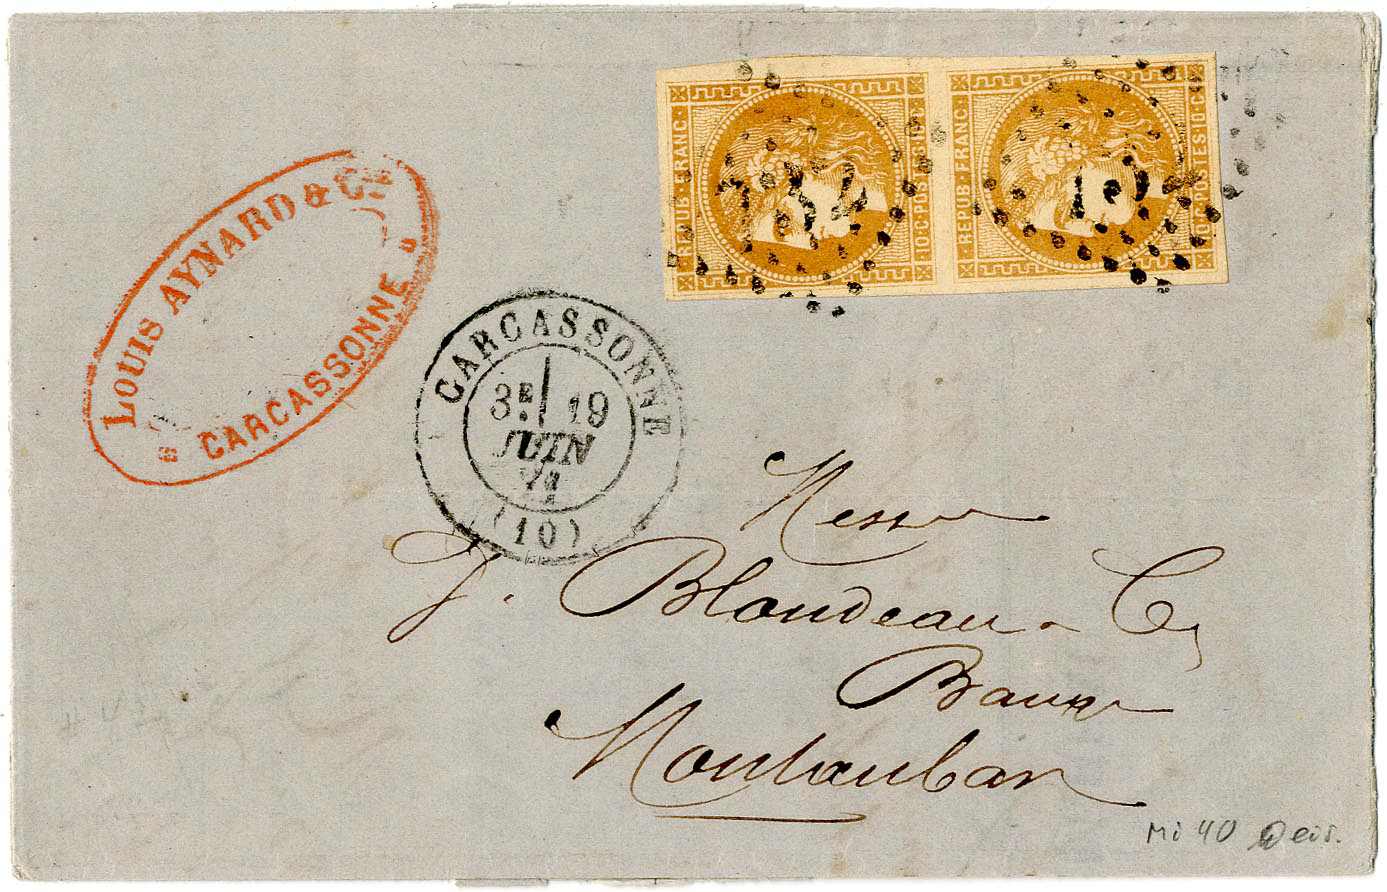 LOUIS AYNARD & Cie
CARCASSONNE
REPUB·FRANC·
10·C·POSTES·10·C·
REPUB·FRANC·
10·C·POSTES·10·C·
CARCASSONNE
3E 19
JUIN
71
(10)
Messrs
J. Blondeau & Cie
Banqrs
Montauban
Mi 40